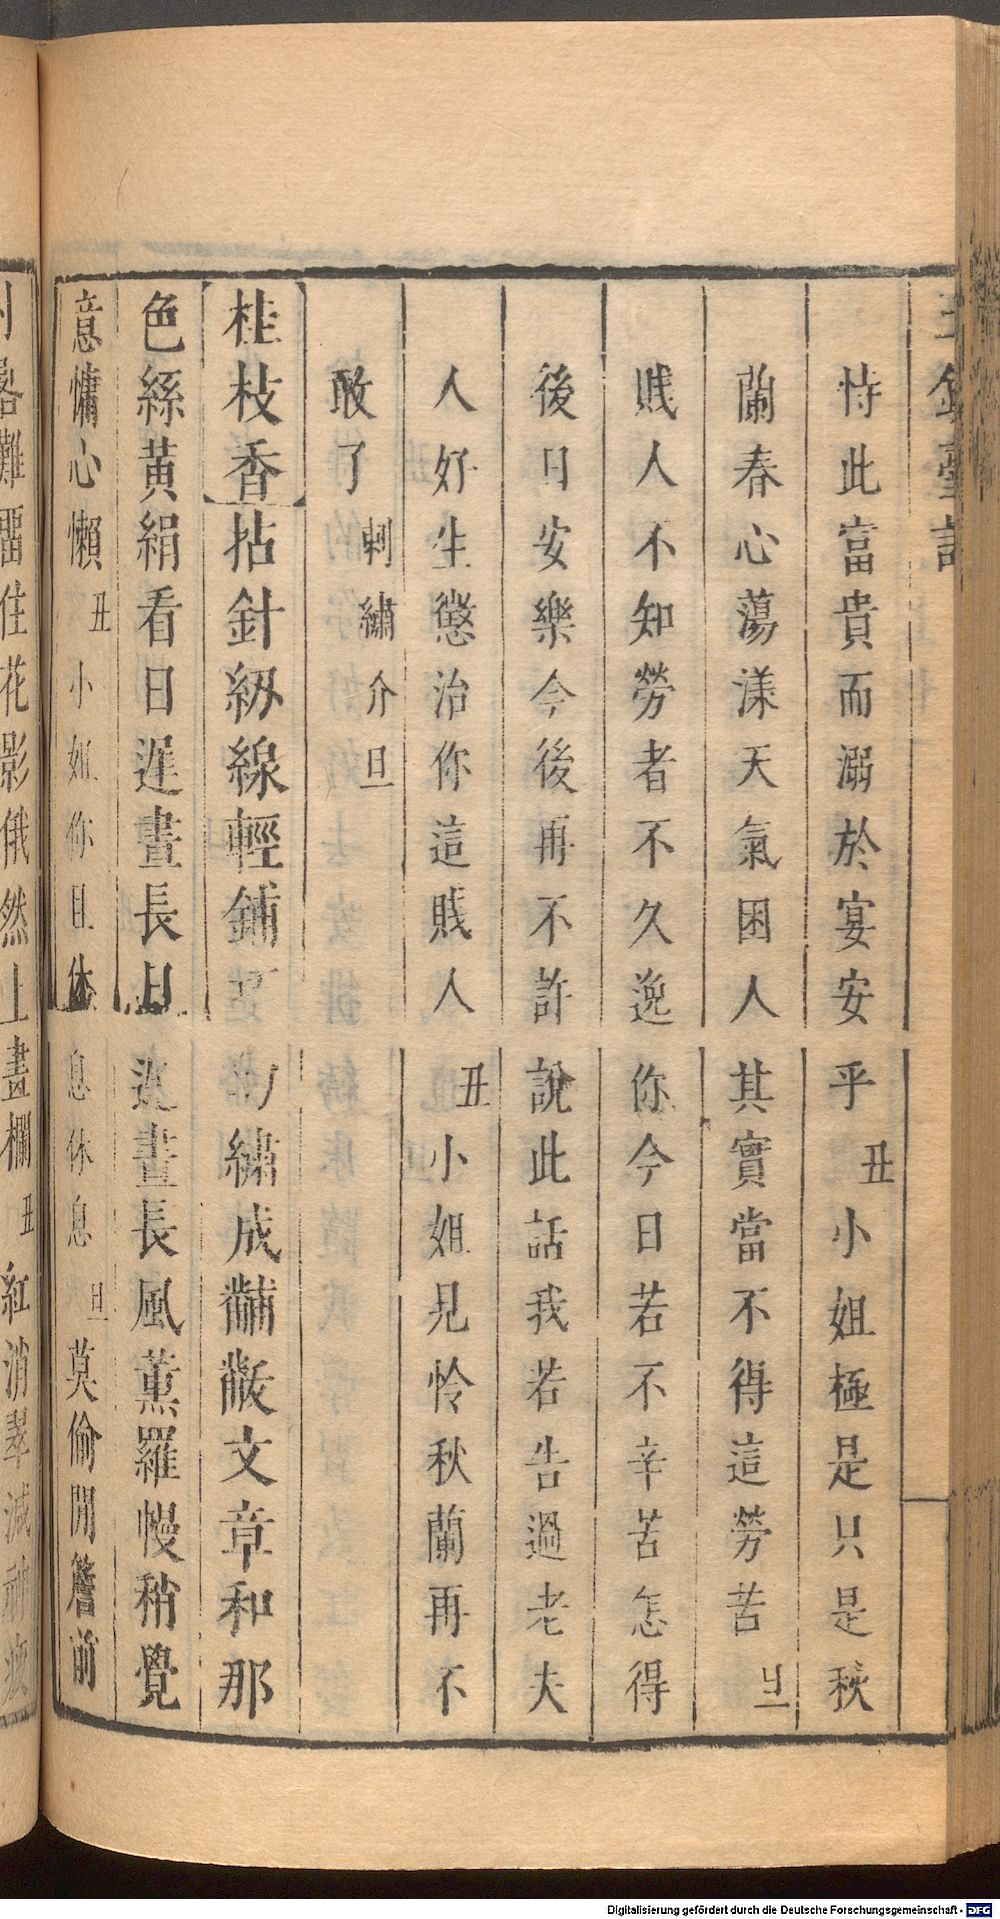 玉鏡臺記
恃此富貴而溺於宴安乎丑小姐極是只是秋
蘭春心蕩漾天氣困人其實當不得這勞苦旦
賤人不知勞者不久逸你今日若不辛苦怎得
後日安樂今後再不許說此話我若告過老夫
人好生懲治你這賤人丑小姐見怜秋蘭再不
敢了刺繡介旦
桂枝香拈針紉線輕鋪繡成黼黻文章和那
色絲黃絹看日遲晝長日遲晝長風薰羅幔稍覺
意慵心懶丑小姐你且休息休息旦莫偷閒簷前
影俄然上畫欄丑紅消翠減
Digitalisierung gefördert durch die Deutsche Forschungsgemeinschaft - DFG